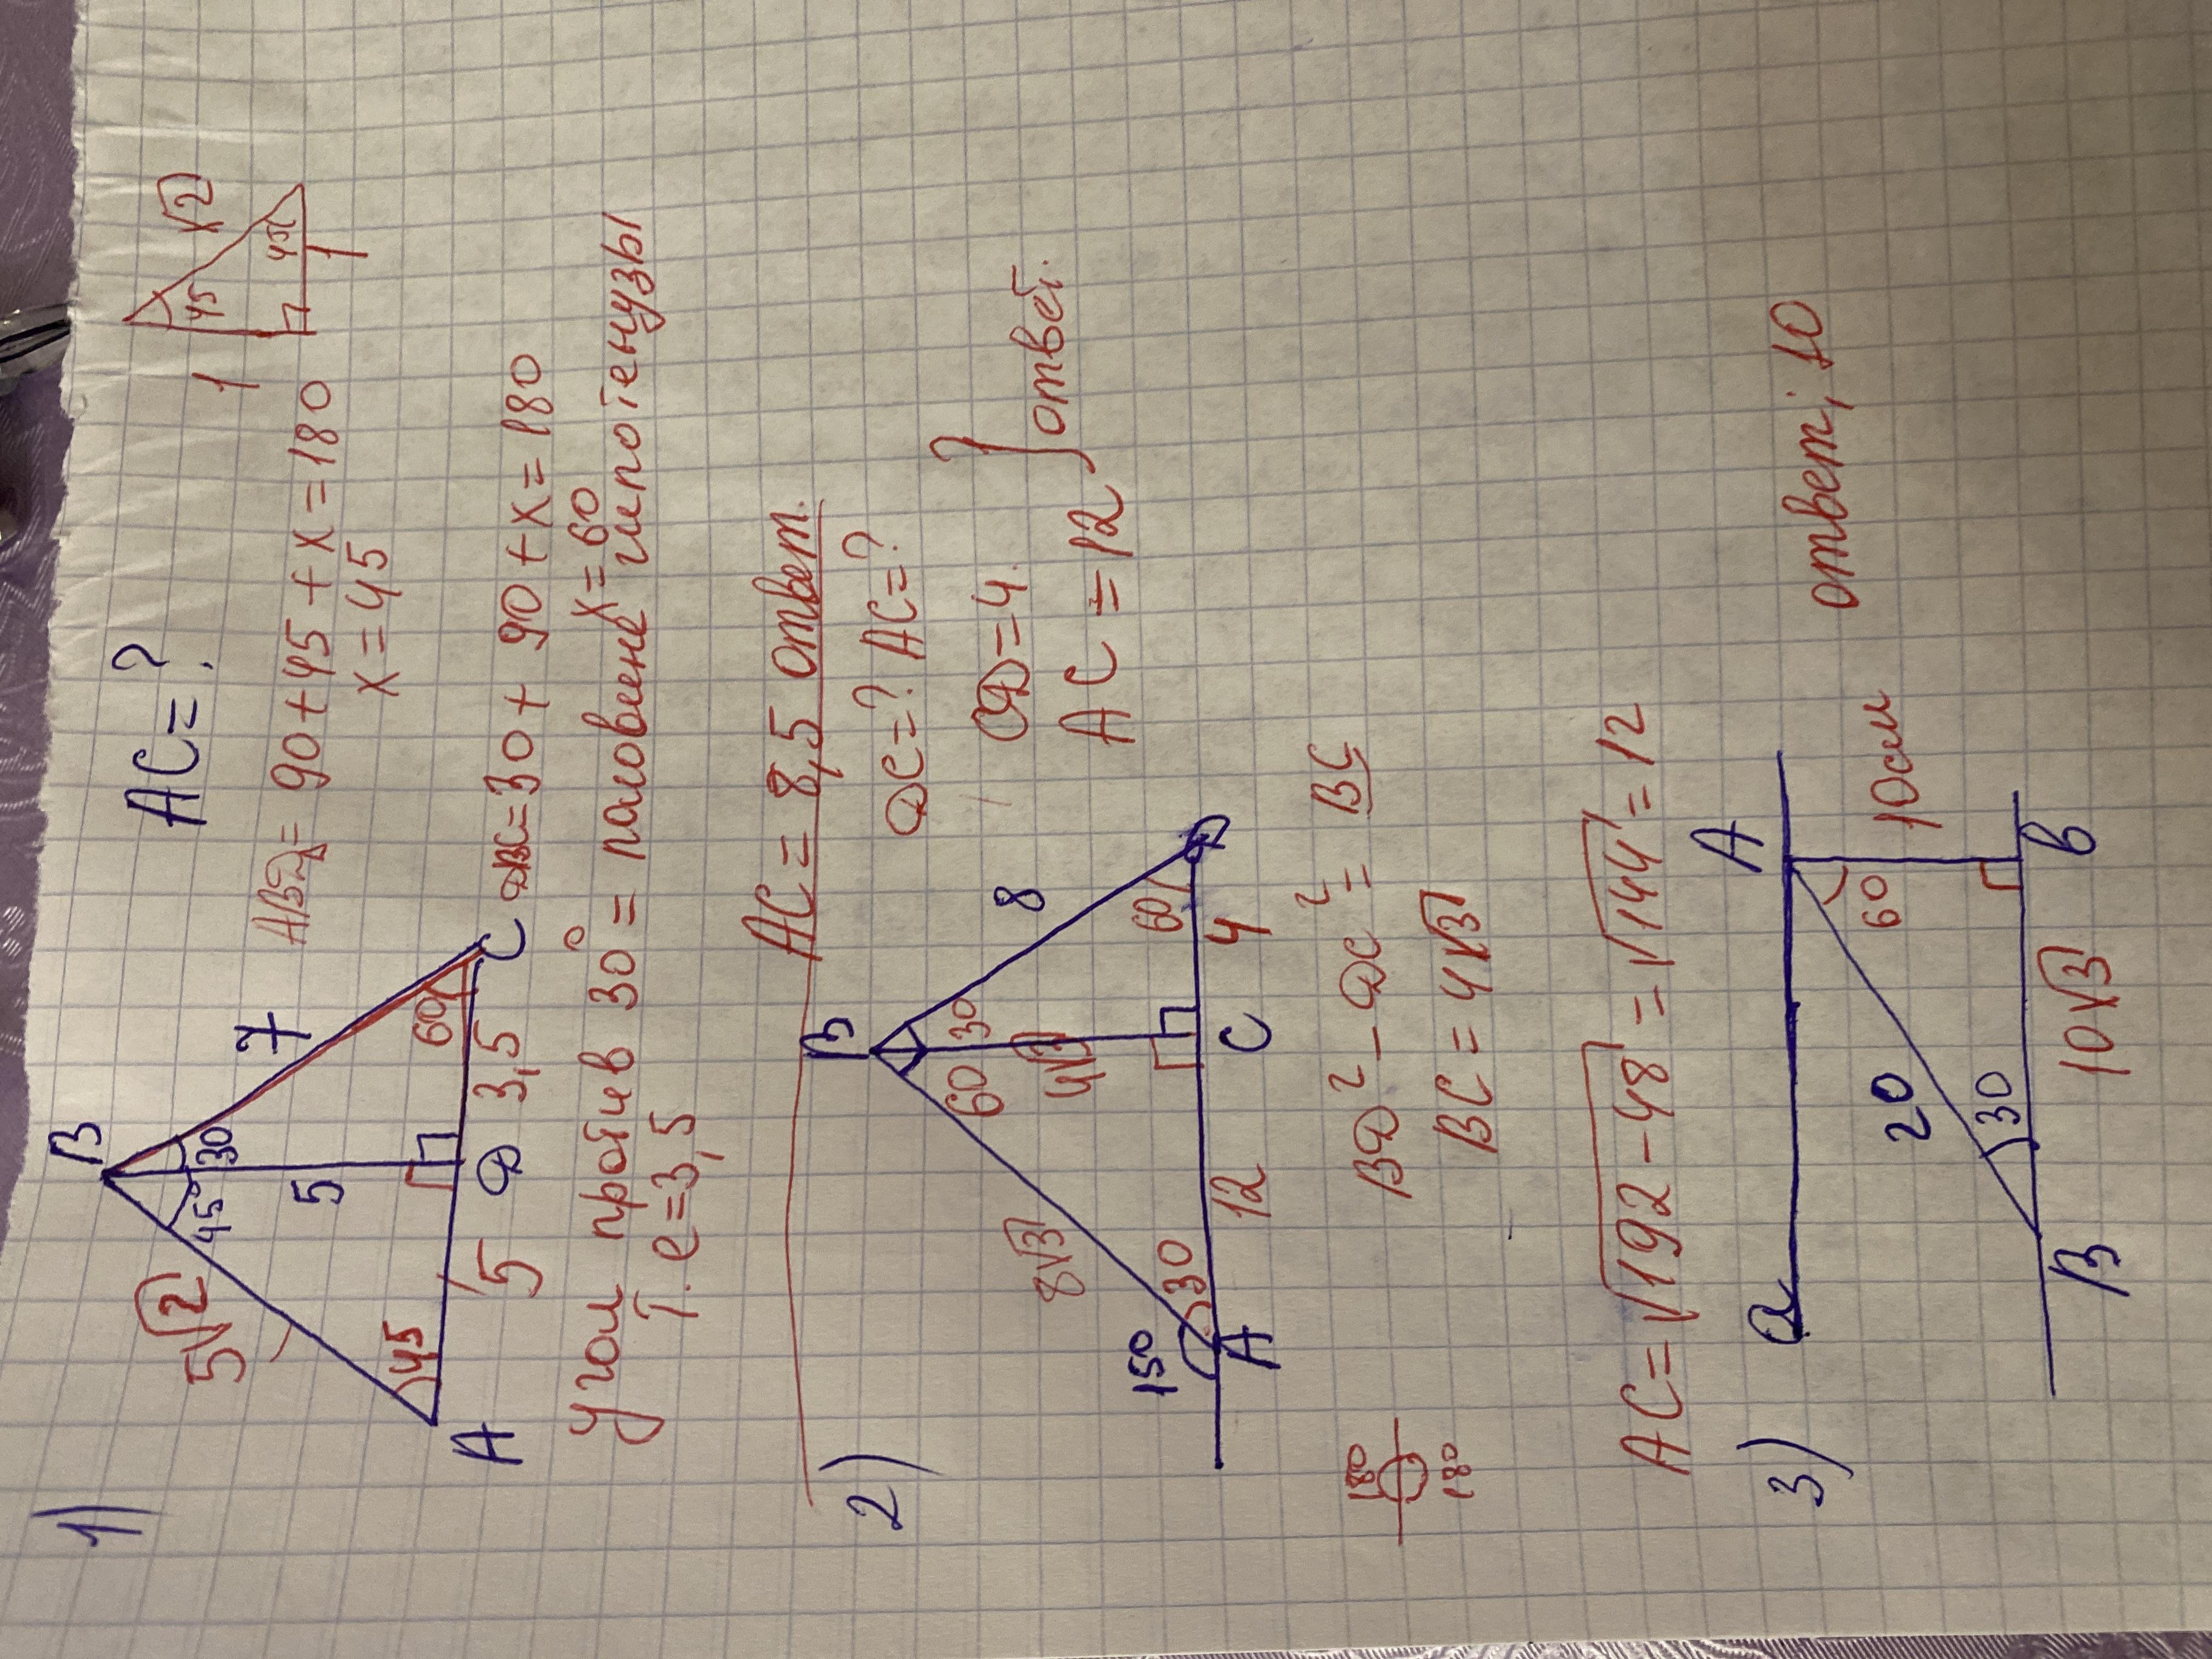 1)
AC=?
B
7
45°
30
5√2
5
45
60
A
5
D
3,5
C
1
45
√2
45
1
ABD= 90+45+x=180
x=45
DBC=30+90+x=180
x=60
Угол против 30° = половине гипотенузы
т.е=3,5
AC= 8,5 ответ.
2)
DC=? AC=?
B
8
60
30
8√3
4√3
150
30
60
A
12
C
4
D
CD=4.
AC=12
} ответ.
BD²-DC²= BC
BC=4√3
180
180
AC=√192-48=√144=12
3)
a
A
20
60
10см
30
B
10√3
B
ответ; 10